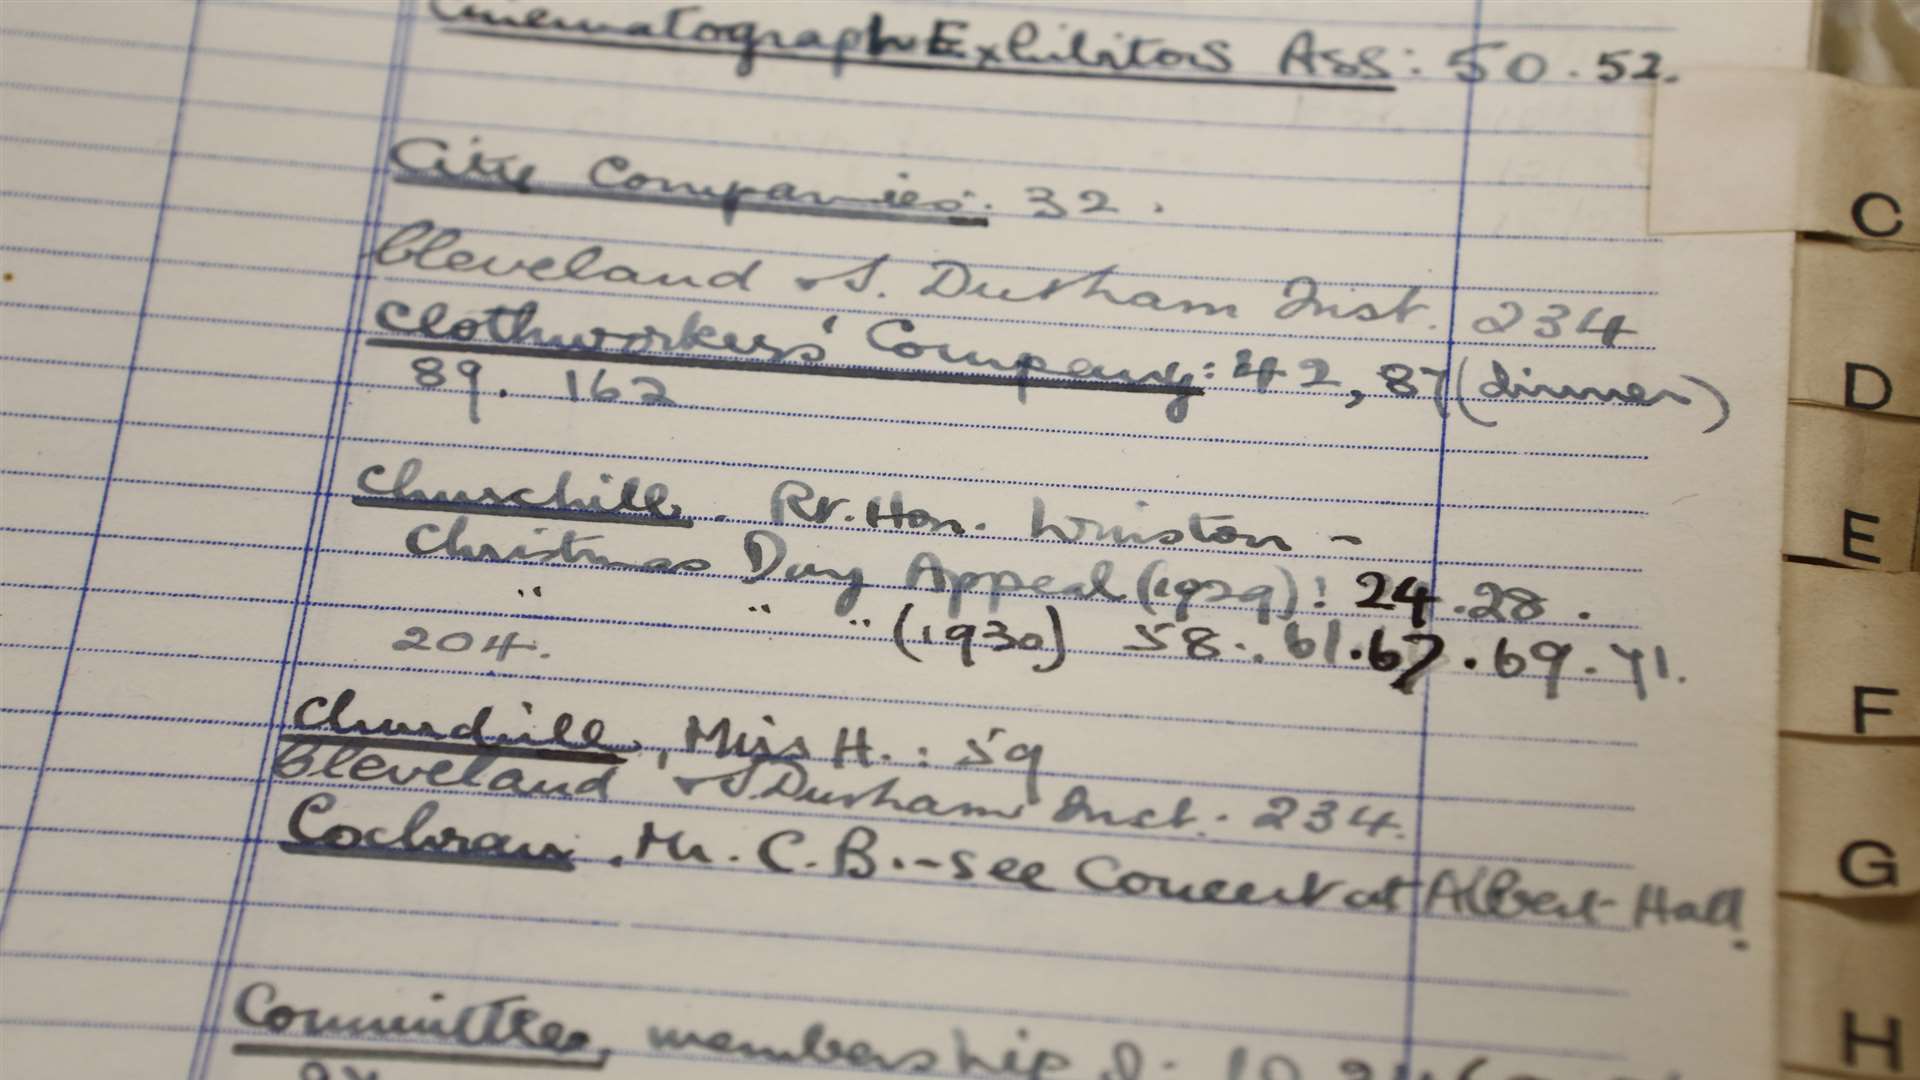 Cinematograph Exhibitors Ass: 50.52.
City Companies: 32.
Cleveland & S. Durham Inst. 234
Clothworkers' Company: 42, 87 (dinner)
89. 162
Churchill. Rt. Hon. Winston -
Christmas Day Appeal (1929): 24.28.
" " " (1930) 58. 61.67.69.71.
204.
Churchill, Miss H.: 59
Cleveland & S Durham Inst. 234.
Cochran, Mr. C.B. - see Concert at Albert Hall.
Committee, membership of. 10.
C
D
E
F
G
H